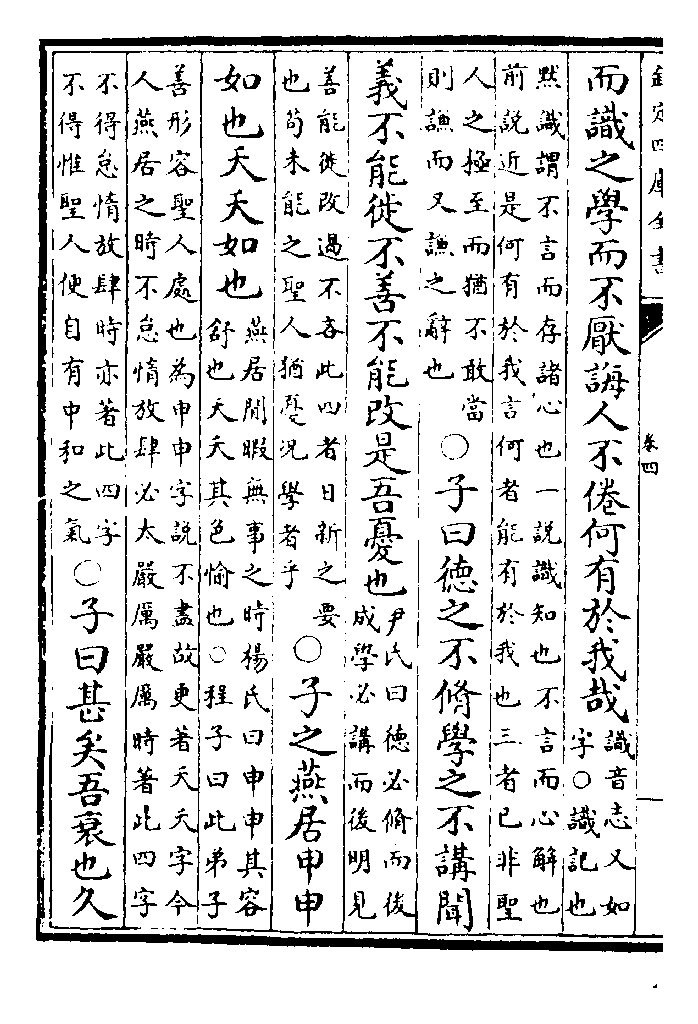 欽定四庫全書
卷四
而識之學而不厭誨人不倦何有於我哉
識音志又如
字○識記也
默識謂不言而存諸心也一説識知也不言而心解也
前説近是何有於我言何者能有於我也三者已非聖
人之極至而猶不敢當
則謙而又謙之辭也
○子曰德之不脩學之不講聞
義不能徙不善不能改是吾憂也
尹氏曰德必脩而後
成學必講而後明見
善能徙改過不吝此四者日新之要
也苟未能之聖人猶憂況學者乎
○子之燕居申申
如也夭夭如也
燕居閒暇無事之時楊氏曰申申其容
舒也夭夭其色愉也○程子曰此弟子
善形容聖人處也為申申字説不盡故更著夭夭字今
人燕居之時不怠惰放肆必太嚴厲嚴厲時著此四字
不得怠惰放肆時亦著此四字
不得惟聖人便自有中和之氣
○子曰甚矣吾衰也久